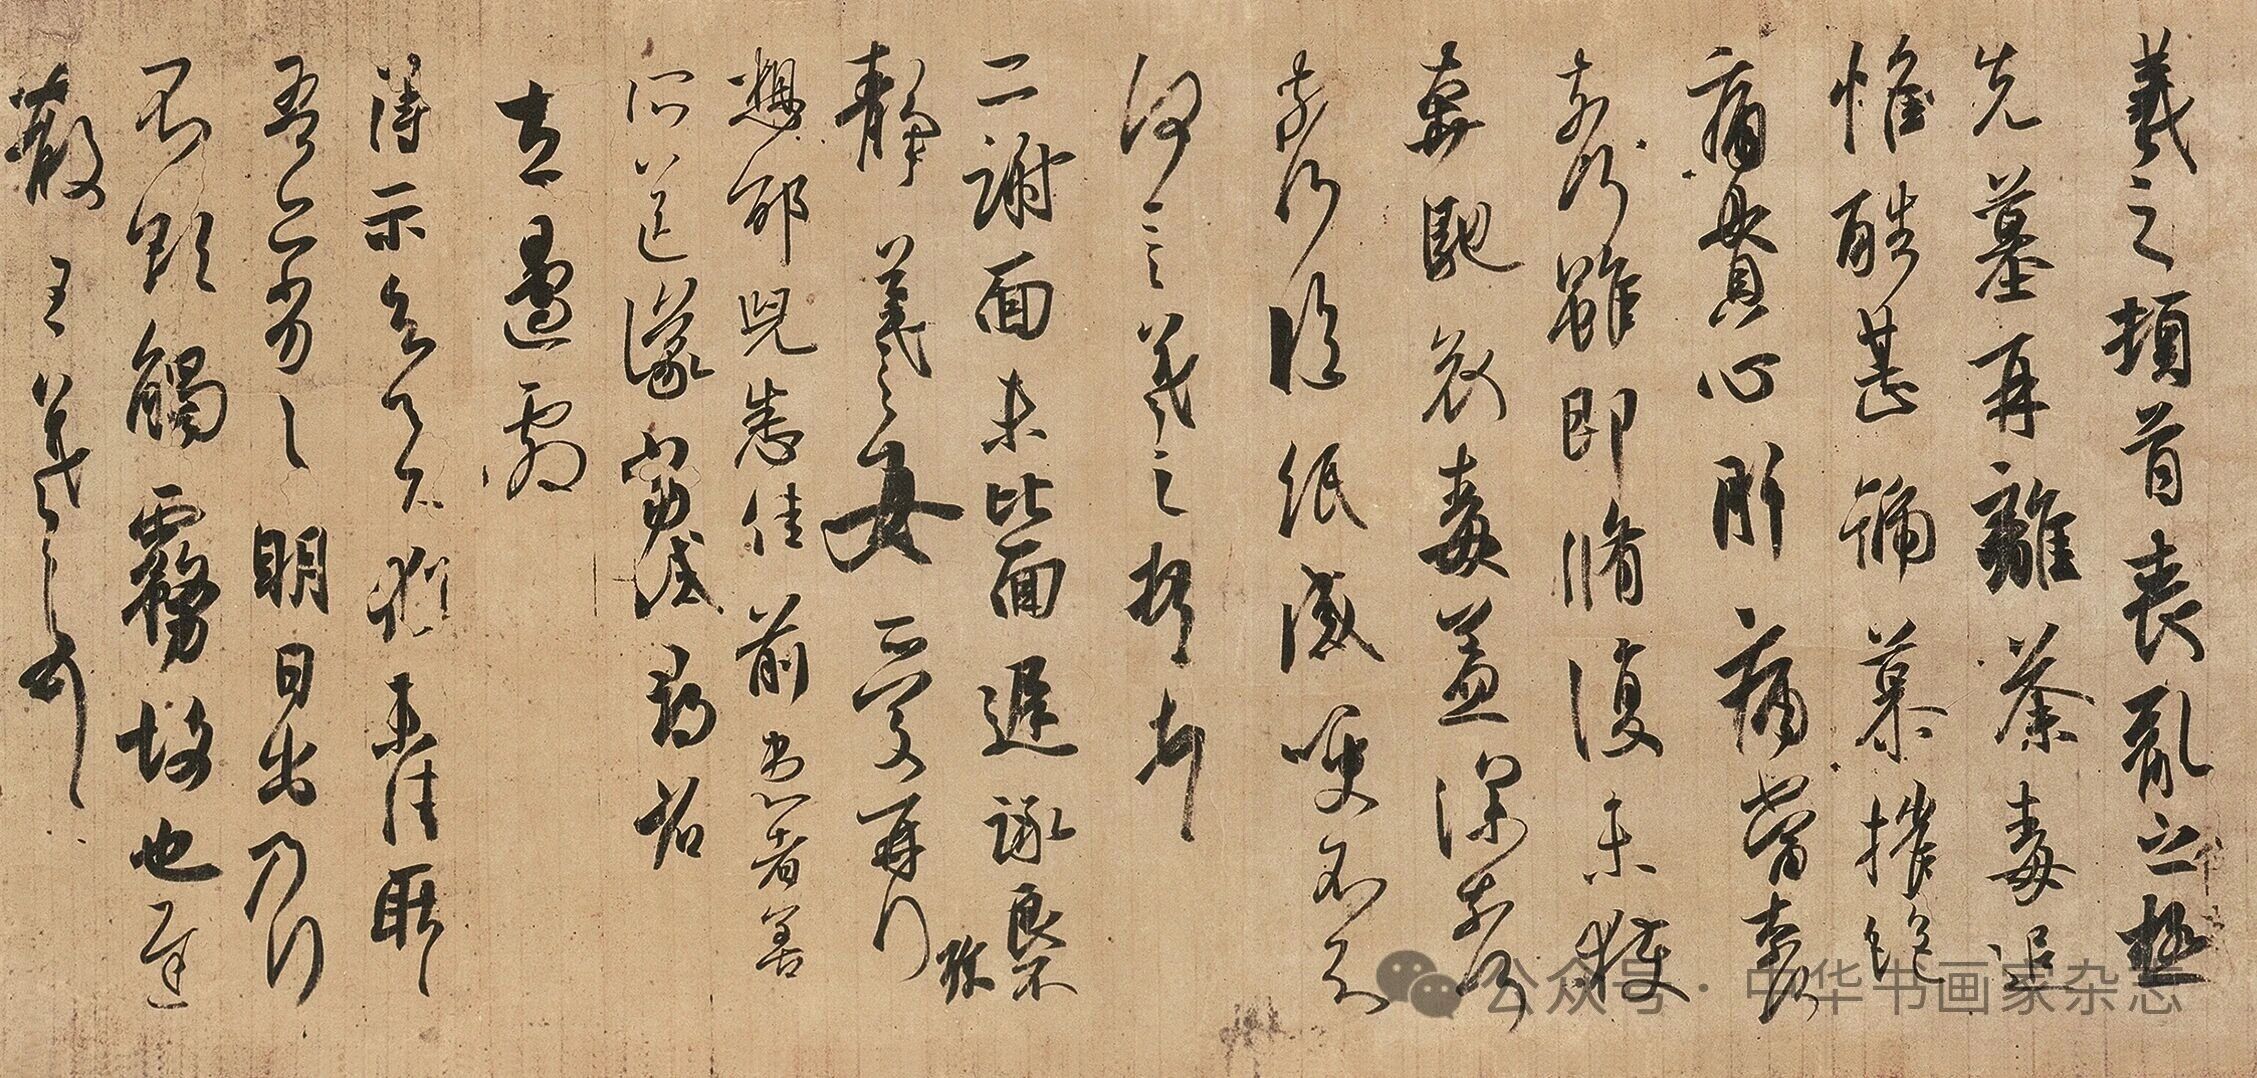 羲之頓首喪亂之極
先墓再離荼毒追
惟酷甚號慕摧絶
痛貫心肝痛當奈何
奈何雖即脩復未獲
奔馳哀毒益深奈何
奈何臨紙感哽不知
何言羲之頓首頓首
二謝面未比面遲詠良不
靜羲之女愛再拜
珍
想邰兒悉佳前患者善
所送議當試尋省
左邊劇
得示知足下猶未佳耿耿
吾亦劣劣明日出乃行
不欲觸霧故也遲
散王羲之頓首
公众号 · 中华书画家杂志